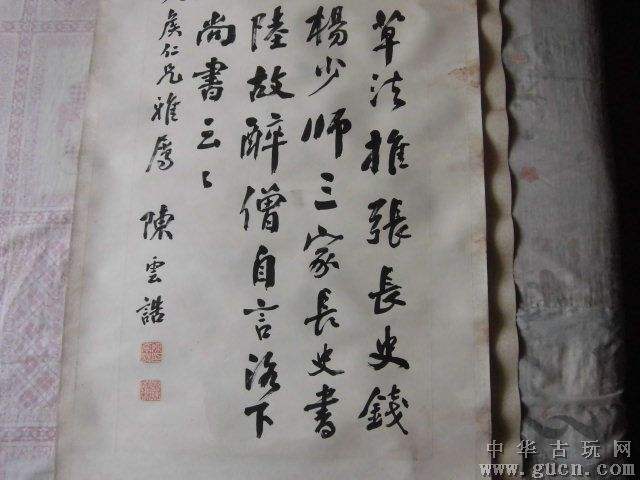 草法推張長史錢
楊少師三家長史書
陸故醉僧自言洛下
尚書云々
侯仁兄雅屬 陳雲誥
中华古玩网
www.gucn.com